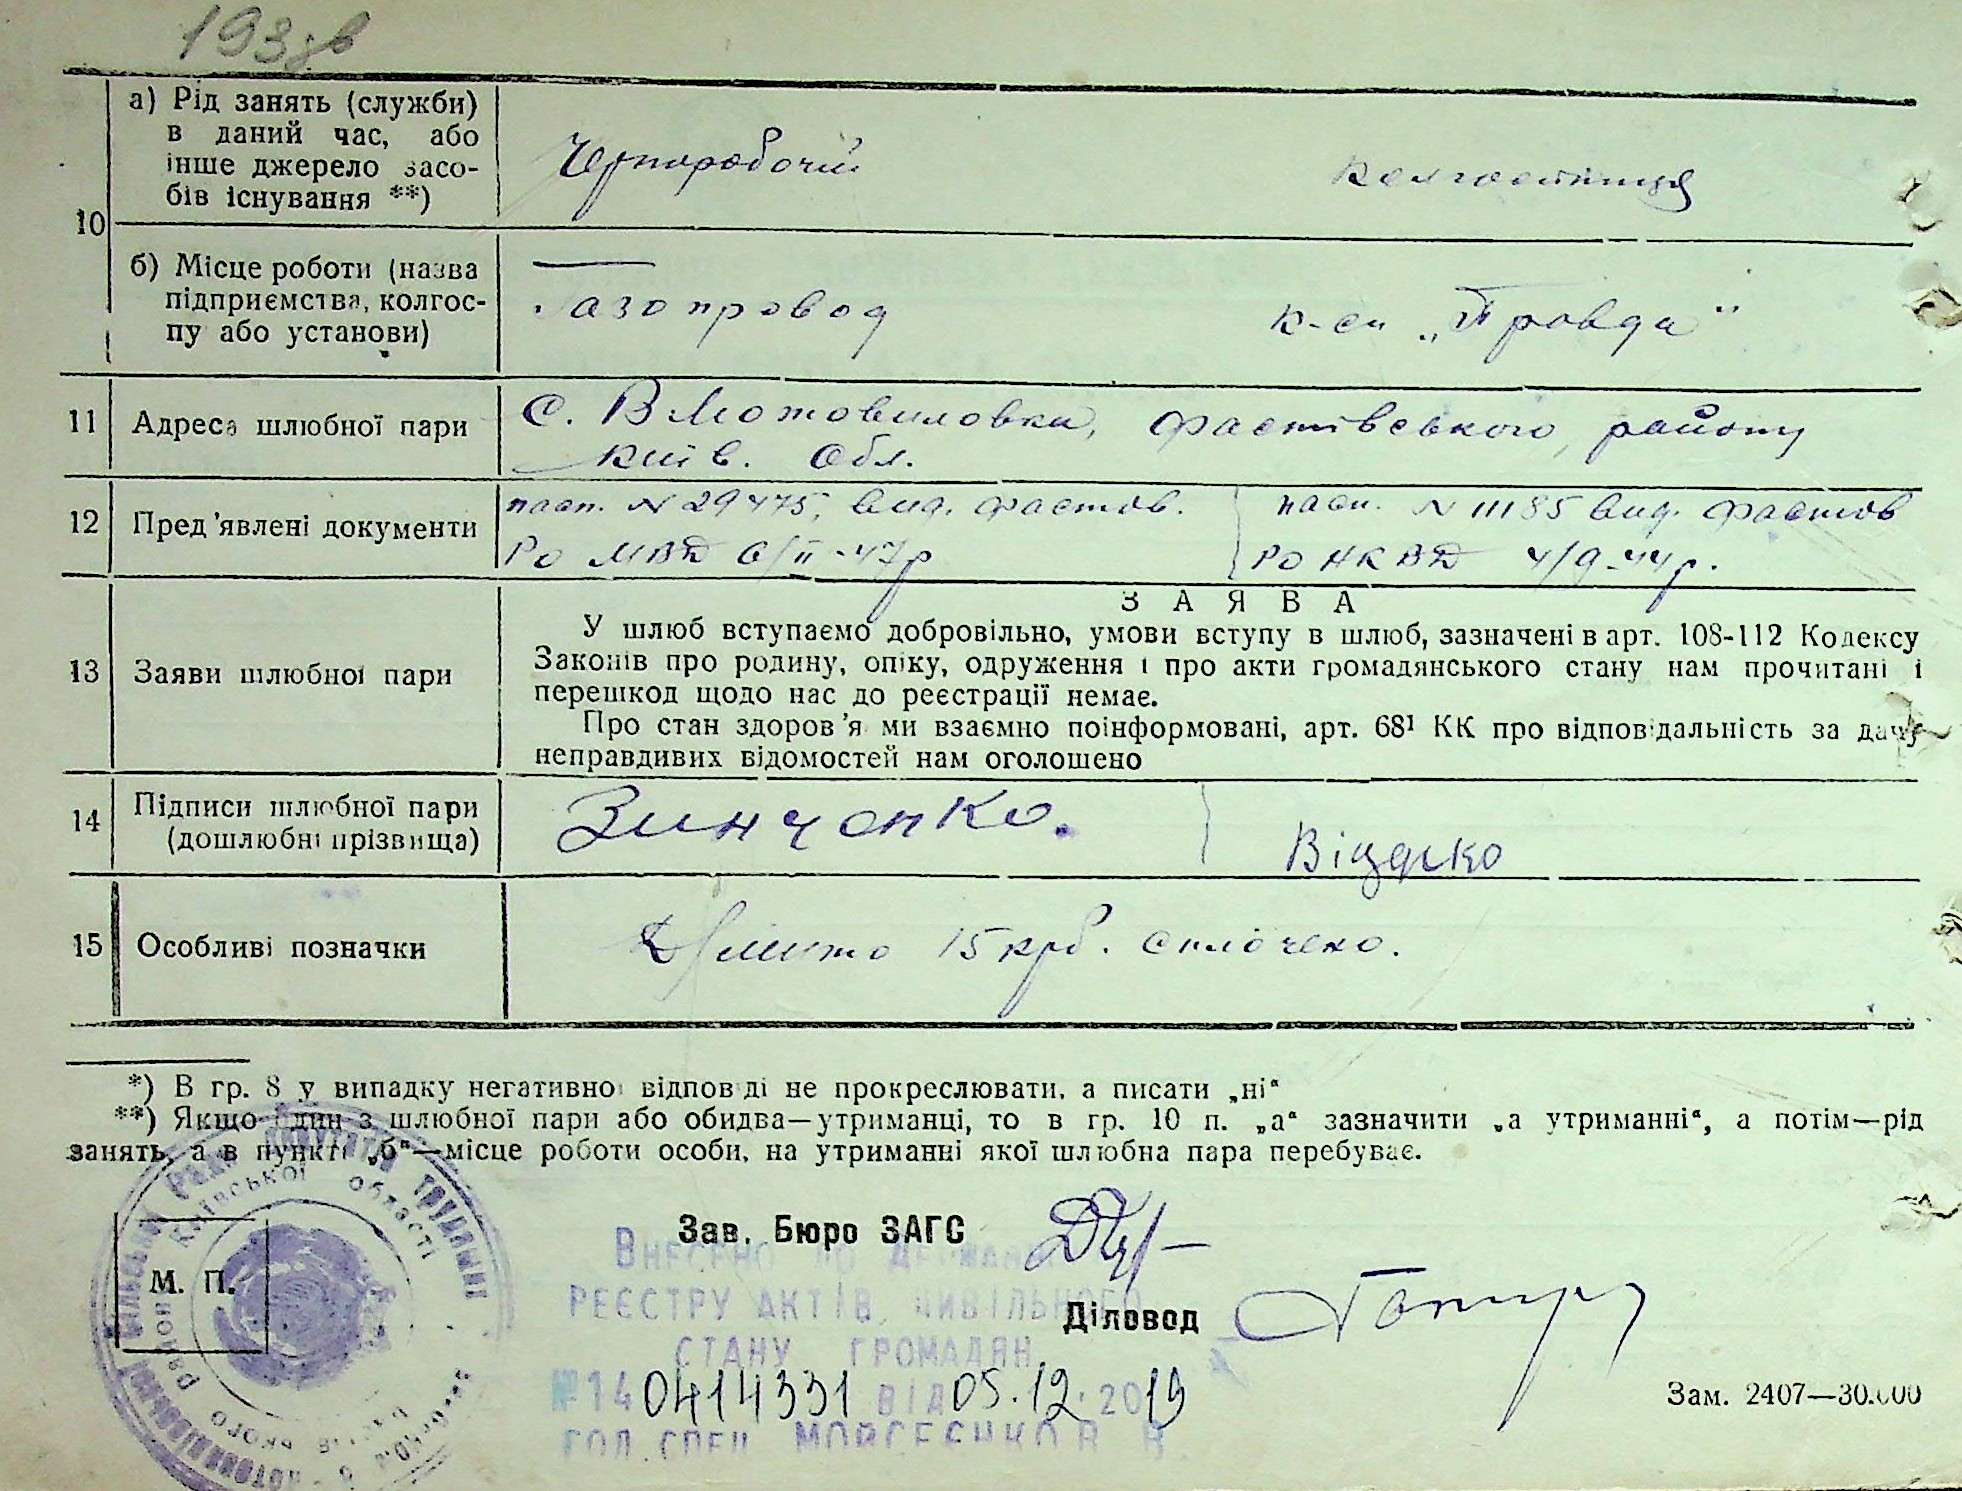 193 зв
10
а) Рід занять (служби)
в даний час, або
інше джерело засо-
бів існування **)
Чернорабочій
колгоспниця
б) Місце роботи (назва
підприємства, колгос-
пу або установи)
Газопровод
к-сп „Правда"
11 Адреса шлюбної пари
С. В Мотовиловка, Фастівського, району
Київ. Обл.
12 Пред'явлені документи
пасп. N 29475, вид. Фастов.
РО МВД 6/II-47р
пасп. N 11185 вид. Фастов
РО НКВД 4/9-44р.
13 Заяви шлюбної пари
ЗАЯВА
У шлюб вступаємо добровільно, умови вступу в шлюб, зазначені в арт. 108-112 Кодексу
Законів про родину, опіку, одруження і про акти громадянського стану нам прочитані і
перешкод щодо нас до реєстрації немає.
Про стан здоров'я ми взаємно поінформовані, арт. 68¹ КК про відповідальність за дачу
неправдивих відомостей нам оголошено
14 Підписи шлюбної пари
(дошлюбні прізвища)
Зинченко.
15 Особливі позначки
Д/мито 15 крб. сплочено.
*) В гр. 8 у випадку негативної відповіді не прокреслювати, а писати „ні“
**) Якщо один з шлюбної пари або обидва—утриманці, то в гр. 10 п. „а“ зазначити „а утриманні“, а потім—рід
занять, а в пункті „б“—місце роботи особи, на утриманні якої шлюбна пара перебуває.
Зав. Бюро ЗАГС
М. П.
Діловод
Київської області
Внесено до Державн
реєстру актів цивільного
стану громадян
№140414331 від 05.12.2019
гол. спец. Мойсеєнко В. В.
Зам. 2407—30.000